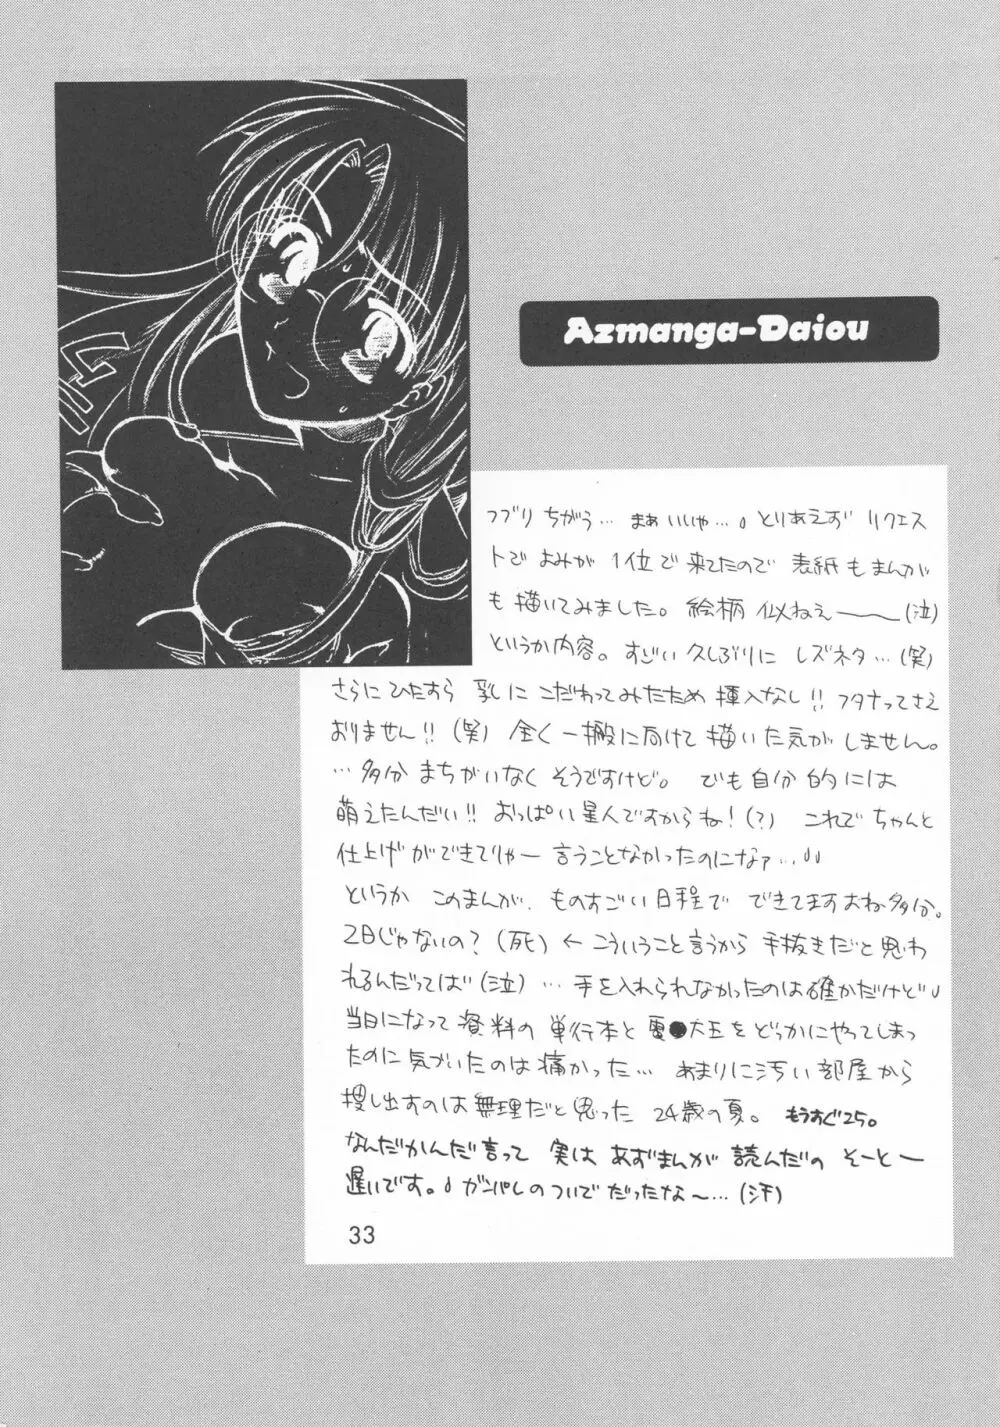 Azmanga-Daiou
フブリ ちがう… まぁ いいゃ… とりあえず リクエス
トで よみが 1位で 来てたので 表紙も まんが
も 描いてみました。 絵柄 似ねえ――(泣)
というか内容。 すごい 久しぶりに レズネタ…(笑)
さらに ひたすら 乳に こだわってみたため 挿入なし!! フタナってさえ
おりません!! (笑) 全く 一搬に向けて 描いた気が しません。
…多分 まちがいなく そうですけど。 でも自分的には
萌えたんだい!! おっぱい星人ですからね!(?) これで ちゃんと
仕上げができてりゃー 言うことなかったのになァ…
というか このまんが、 ものすごい日程で できてますよね多分。
2日じゃないの? (死) ← こういうこと言うから 手抜きだと思わ
れるんだってば(泣) … 手を入れられなかったのは確かだけど
当日になって 資料の 単行本と 電●大王を どっかにやってしまっ
たのに気づいたのは痛かった… あまりに汚い部屋から
捜し出すのは無理だと思った 24歳の夏。 もうすぐ25。
なんだかんだ言って 実は あずまんが 読んだの そーとー
遅いです。 ガンパレのついでだったな～…(汗)
33